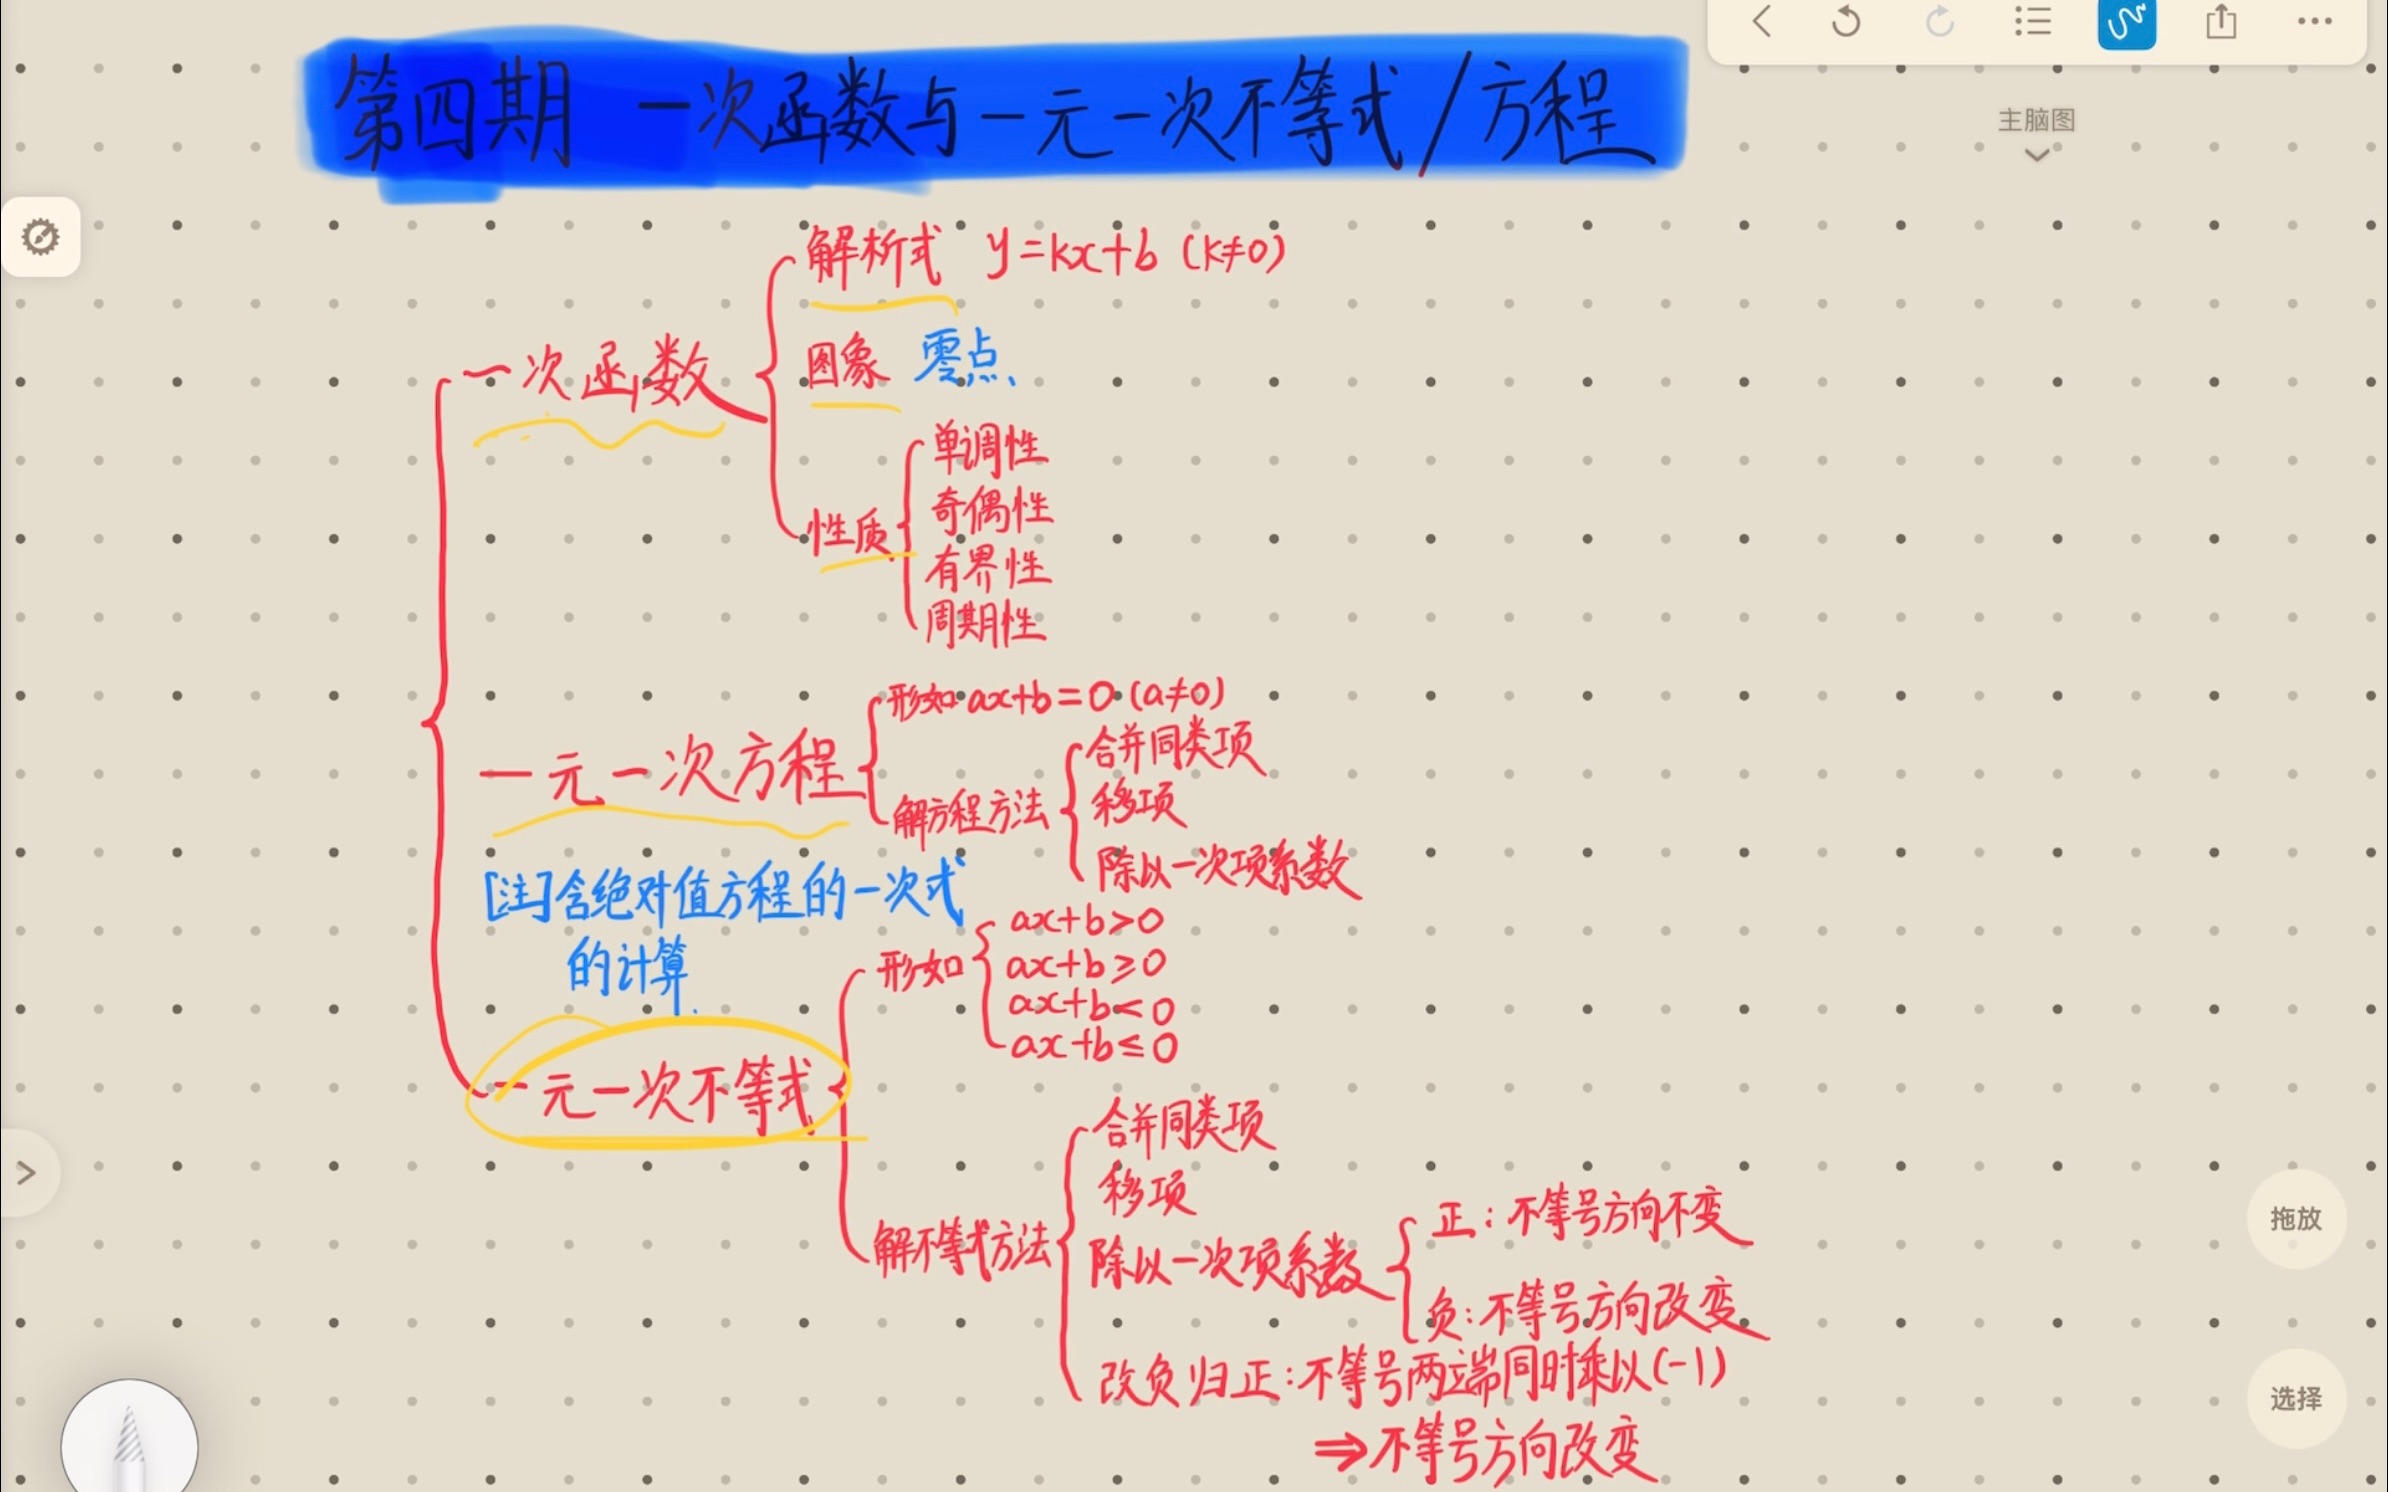 第四期 一次函数与一元一次不等式/方程
主脑图
解析式 y=kx+b (k≠0)
一次函数
图象 零点、
性质
单调性
奇偶性
有界性
周期性
一元一次方程
形如 ax+b=0 (a≠0)
解方程方法
合并同类项
移项
除以一次项系数
[注]含绝对值方程的一次式
的计算.
一元一次不等式
形如
ax+b>0
ax+b≥0
ax+b<0
ax+b≤0
解不等式方法
合并同类项
移项
除以一次项系数
正:不等号方向不变
负:不等号方向改变
改负归正:不等号两端同时乘以(-1)
⇒不等号方向改变
拖放
选择